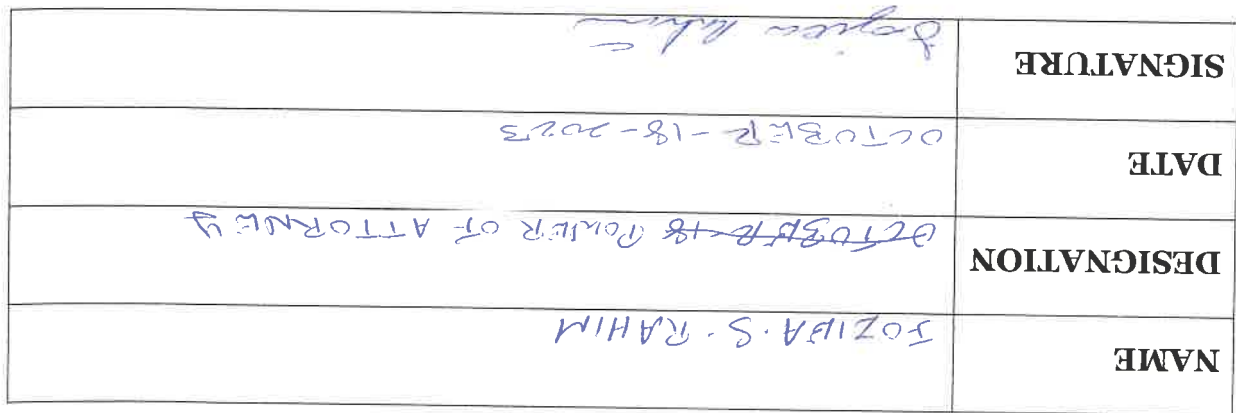 NAME S. RAHIM
DESIGNATION OCTOBER-18 POWER OF ATTORNEY
DATE OCTOBER-18-2023
SIGNATURE